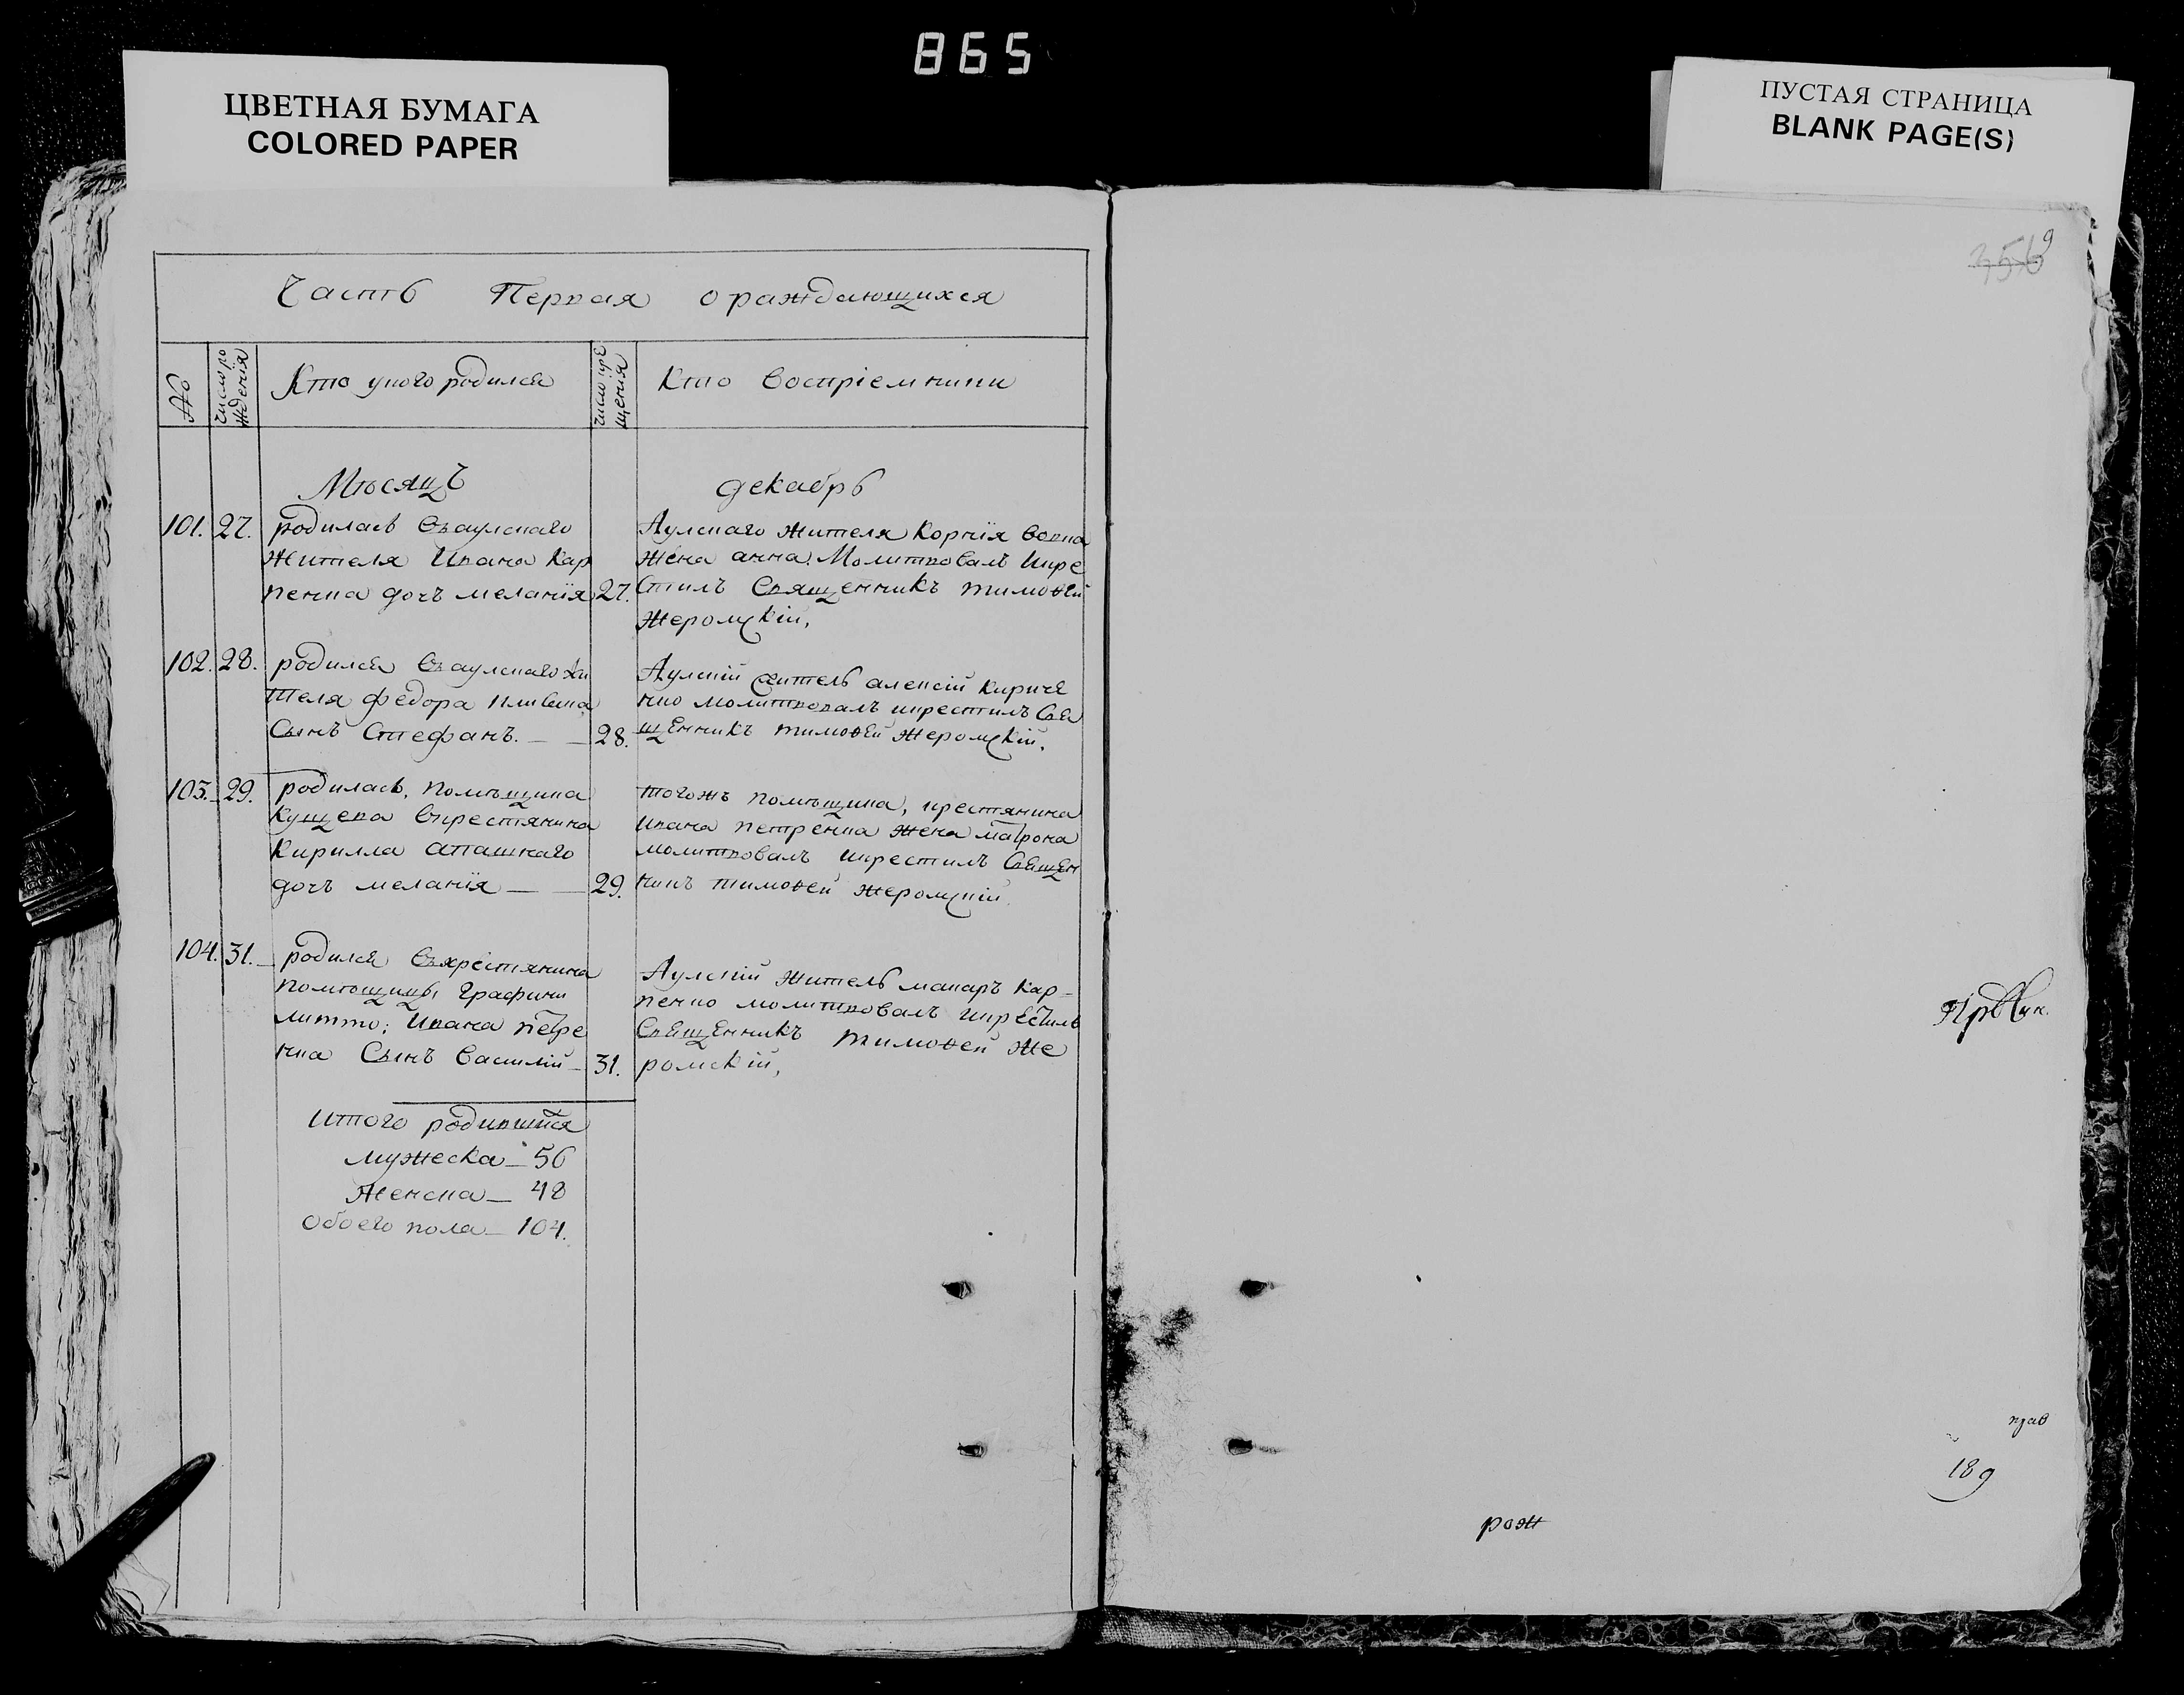 865
ЦВЕТНАЯ БУМАГА
COLORED PAPER
ПУСТАЯ СТРАНИЦА
BLANK PAGE(S)
Часть Первая о раждающихся
№
Число ро
жденія
Кто укого родился
Число кре
щенія
Кто воспріемники
Мѣсяцъ декабрь
101. 27. родилась Въаулскаго
жителя Ивана Кар
пенка дочъ меланія 27.
Аулскаго жителя Корнія вовка
жена анна. Молитвовалъ икре
стилъ Священникъ тимоѳей
жеромскій,
102. 28. родился Въаулскаго жи
теля Федора
Сынъ Стефанъ. — 28.
Аулскій житель алексій кириче
нко молитвовалъ икрестилъ Свя
щенникъ тимоѳей жеромскій.
103. 29. родилась, помѣщика
Кущева вкрестянина
Кирилла
дочъ меланія — 29.
тогожъ помѣщика, крестянина
ивана петренка жена матрона
молитвовалъ икрестилъ Свещен
никъ тимоѳей жеромскій.
104. 31. родился Въкрестянина
помѣщицы Графини
литто; Ивана петре
нка Сынъ василій — 31.
Аулскій житель макаръ кар-
пенко молитвовалъ икрестилъ
Свещенникъ тимоѳей же
ромскій,
итого родившися
мужеска — 56
женска — 48
обоего пола — 104.
356
9
189
рож